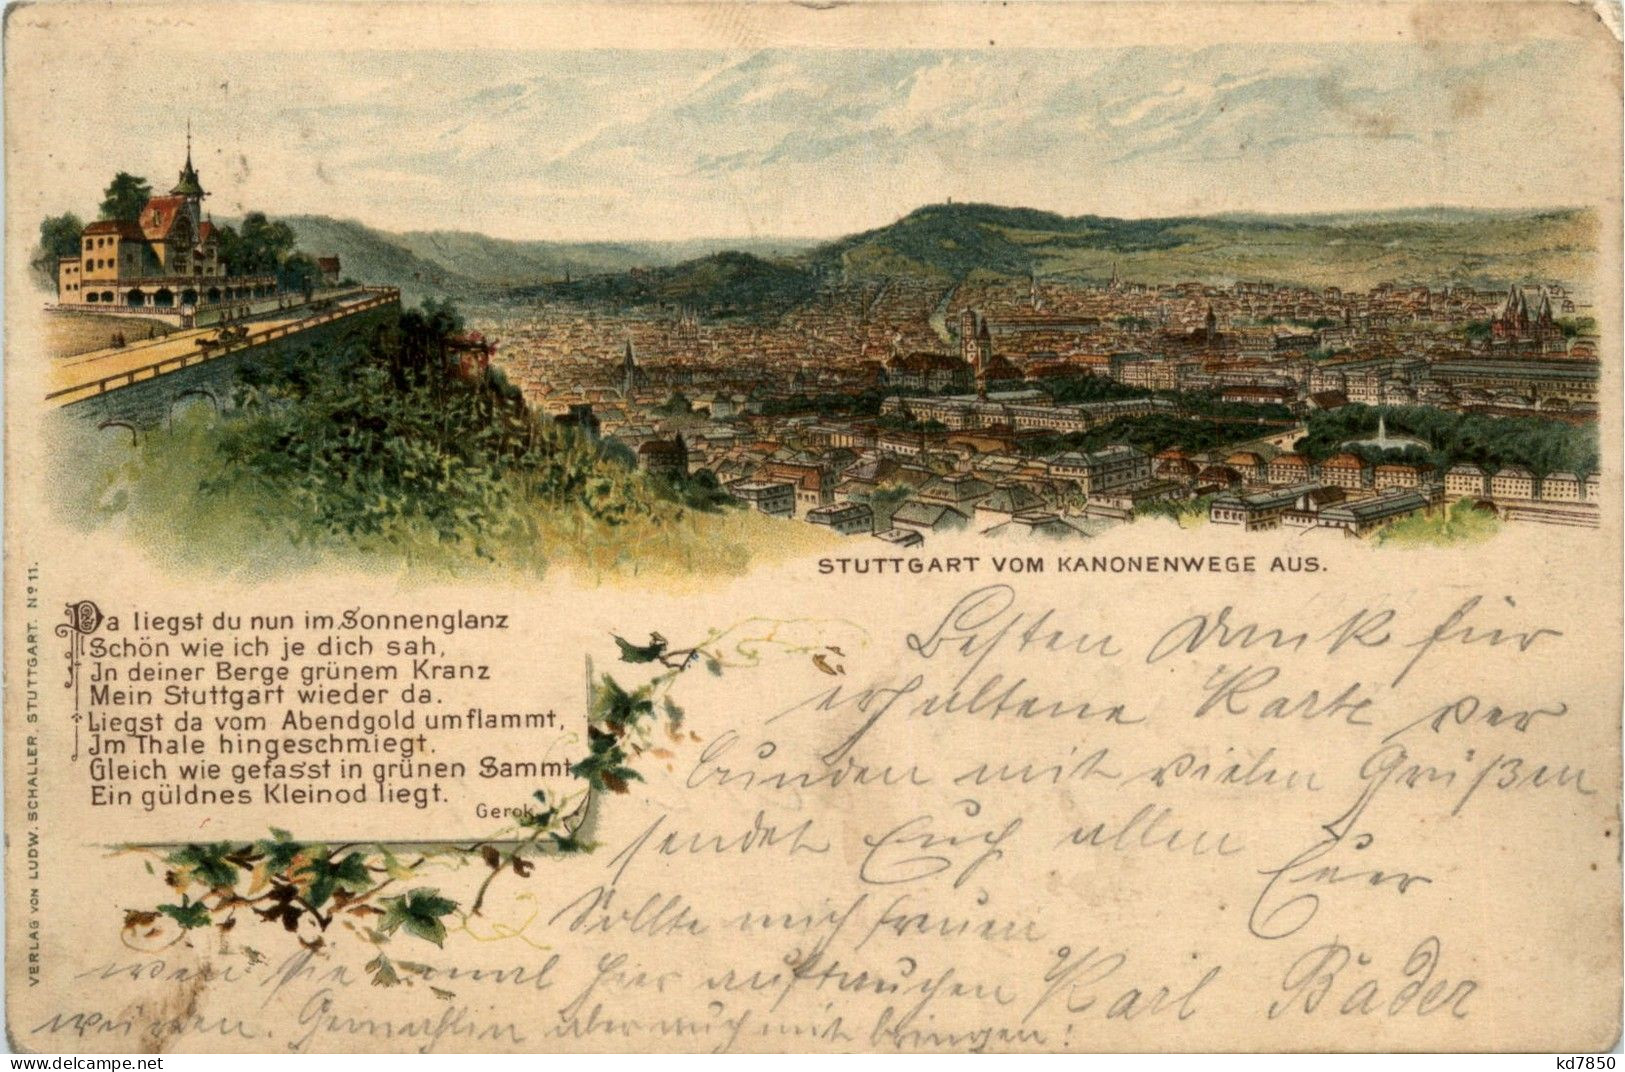 STUTTGART VOM KANONENWEGE AUS.
Da liegst du nun im Sonnenglanz
Schön wie ich je dich sah,
In deiner Berge grünem Kranz
Mein Stuttgart wieder da.
Liegst da vom Abendgold umflammt,
Im Thale hingeschmiegt.
Gleich wie gefasst in grünen Sammt
Ein güldnes Kleinod liegt.
Gerok.
VERLAG VON LUDW. SCHALLER, STUTTGART. No 11.
Besten Dank für
erhaltene Karte ver
bunden mit vielen Grüßen
sendet Euch allen
Euer
Karl Bäder
Sollte mich freuen
wen sie einmal hier auftauchen
würden. Gemahlin aber auch mit bringen!
www.delcampe.net
kd7850